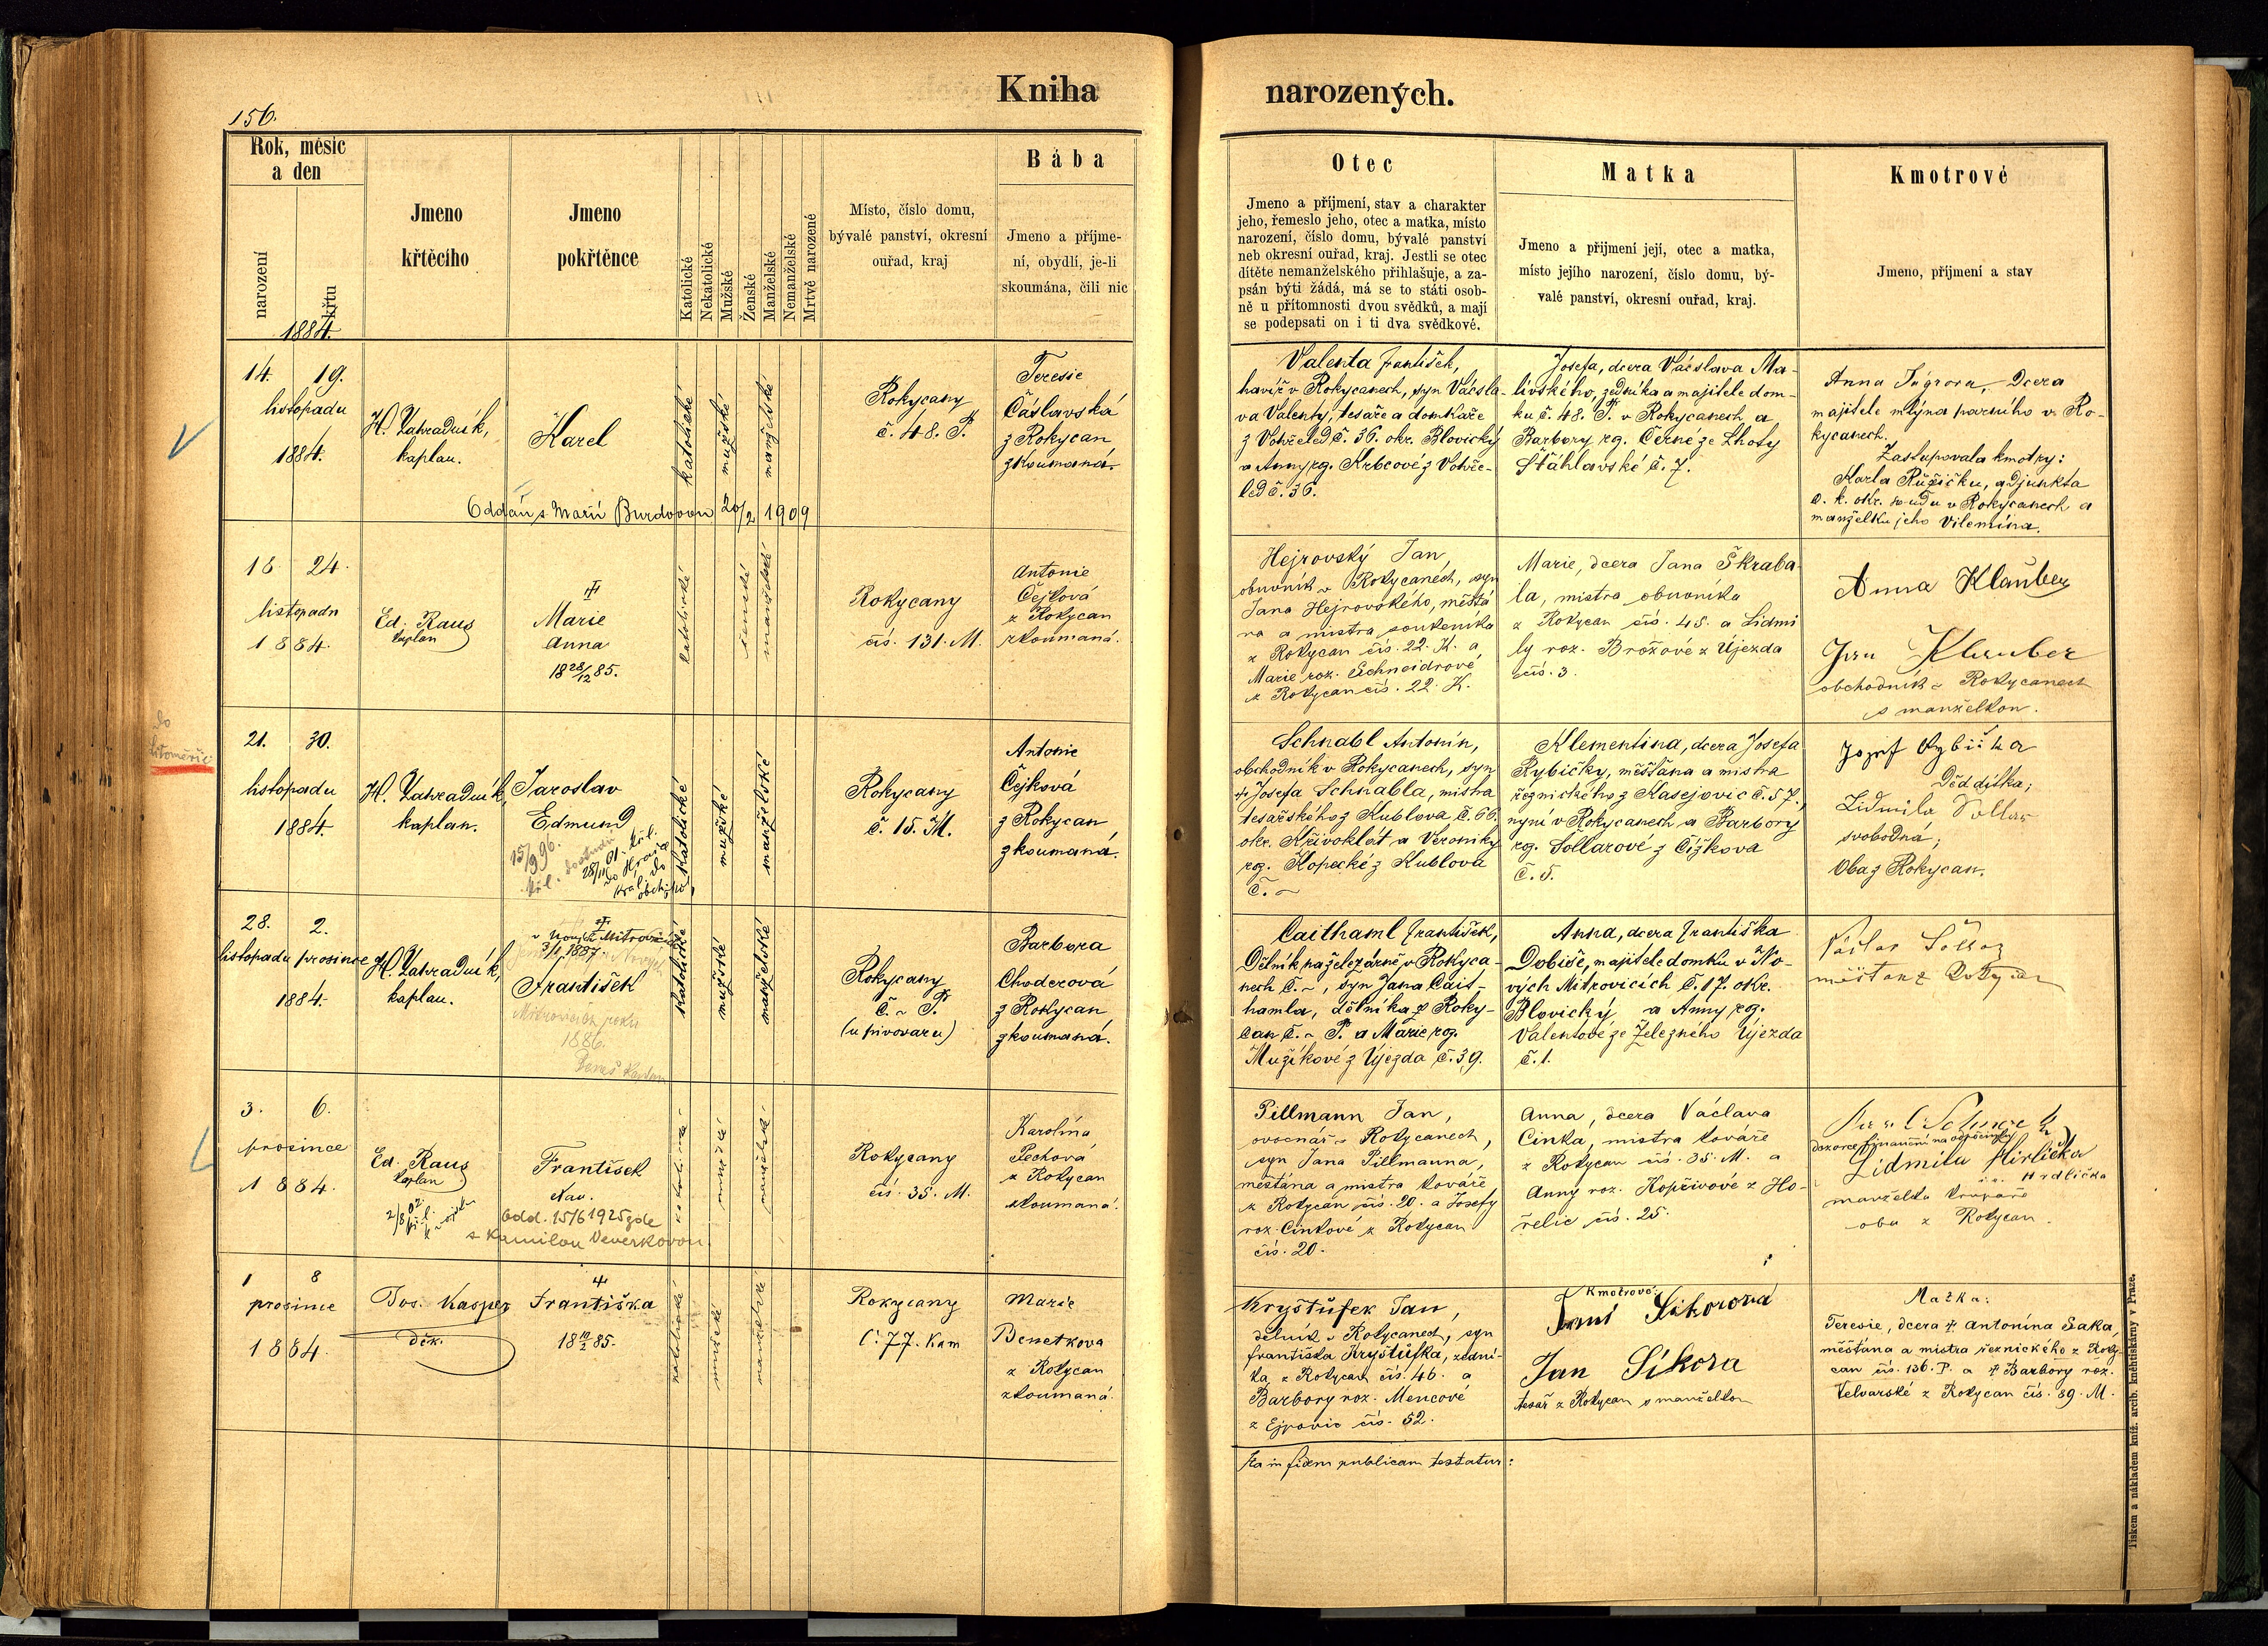 156.
Kniha narozených.
Rok, měsíc
a den
narození
křtu
1884.
Jmeno
křtěcího
Jmeno
pokřtěnce
Katolické
Nekatolické
Mužské
Ženské
Manželské
Nemanželské
Mrtvě narozené
Místo, číslo domu,
bývalé panství, okresní
ouřad, kraj
Bába
Jmeno a příjme-
ní, obydlí, je-li
skoumána, čili nic
Otec
Jmeno a příjmení, stav a charakter
jeho, řemeslo jeho, otec a matka, místo
narození, číslo domu, bývalé panství
neb okresní ouřad, kraj. Jestli se otec
dítěte nemanželského přihlašuje, a za-
psán býti žádá, má se to státi osob-
ně u přítomnosti dvou svědků, a mají
se podepsati on i ti dva svědkové.
Matka
Jmeno a přijmení její, otec a matka,
místo jejího narození, číslo domu, bý-
valé panství, okresní ouřad, kraj.
Kmotrové
Jmeno, příjmení a stav
14. 19.
listopadu
1884.
H. Zahradník,
kaplan.
Karel
katolické
mužské
manželské
Oddán s Marií Burdovou 20/2 1909
Rokycany
č. 48. P.
Teresie
Čáslavská
z Rokycan
zkoumaná.
Valenta František,
havíř v Rokycanech, syn Václa-
va Valenty, tesaře a domkaře
z Votvčeled č. 36. okr. Blovický
a Anny rz. Krbcové z Votvče-
led č. 36.
Josefa, dcera Václava Ma-
livského, zedníka a majitele dom-
ku č. 48. P. v Rokycanech a
Barbory rz. Černé ze Lhoty
Šťáhlavské č. 7.
Anna Dcera
majitele mlýna parního v Ro-
kycanech.
Zastupovala kmotry:
Karla Růžičku, adjunkta
c. k. okr. soudu v Rokycanech a
manželku jeho Vilemína.
18. 24.
listopadu
1884.
Ed. Raus
kaplan
Marie
Anna
18 28/12 85.
katolické
ženské
manželské
Rokycany
čís. 131. M.
Antonie
Čejková
z Rokycan
zkoumaná.
Hejrovský Jan,
obuvník v Rokycanech, syn
Jana Hejrovského, měšťa-
na a mistra soukeníka
z Rokycan čís. 22. K. a
Marie roz. Schneidrové
z Rokycan čís. 22. K.
Marie, dcera Jana Škraba-
la, mistra obuvníka
z Rokycan čís. 45. a Lidmi
ly roz. Brožové z Újezda
čís. 3.
Anna Klauber
Jan Klauber
obchodník v Rokycanech
s manželkou.
do
Litoměřic
21. 30.
listopadu
1884.
H. Zahradník,
kaplan.
Jaroslav
Edmund
15/9 96.
28/11 01.
katolické
mužské
manželské
Rokycany
č. 15. M.
Antonie
Čejková
z Rokycan
zkoumaná.
Schnabl Antonín,
obchodník v Rokycanech, syn
† Josefa Schnabla, mistra
tesařského z Kublova č. 66.
okr. Křivoklát a Veroniky
rz. Kopecké z Kublova
č. ~
Klementina, dcera Josefa
Rybičky, měšťana a mistra
řeznického z Kasejovic č. 57.,
nyní v Rokycanech a Barbory
rz. Šollarové z Čížkova
č. 5.
Jozef Rybička
Děd dítka;
Lidmila Sollar
svobodná;
Oba z Rokycan.
28. 2.
listopadu prosince
1884.
H. Zahradník,
kaplan.
v Nových Mitrovicích
3/1 1887.
František
Mitrovicích roku
1886.
katolické
mužské
manželské
Rokycany
č. ~ P.
(u pivovaru)
Barbora
Choderová
z Rokycan
zkoumaná.
Caithaml František,
Dělník na železárně v Rokyca-
nech č. ~, syn Jana Cait-
hamla, dělníka z Roky-
can č. ~ P. a Marie rz.
Mužíkové z Újezda č. 39.
Anna, dcera Františka
Dobiše, majitele domku v No-
vých Mitrovicích č. 17. okr.
Blovický a Anny rz.
Valentové ze Železného Újezda
č. 1.
Václav Šollar
měšťan z Rokycan
3. 6.
prosince
1884.
Ed. Raus
kaplan
2/8 02.
František
Xav.
Odd. 15/6 1925 zde
s Kamilou Veverkovou.
katolické
mužské
manželské
Rokycany
čís. 35. M.
Karolina
Pechová
z Rokycan
zkoumaná.
Pillmann Jan,
ovocnář v Rokycanech,
syn Jana Pillmanna,
měšťana a mistra kováře
z Rokycan čís. 20. a Josefy
roz. Cinkové z Rokycan
čís. 20.
Anna, dcera Václava
Cinka, mistra kováře
z Rokycan čís. 35. M. a
Anny roz. Kopřivové z Ho-
řelic čís. 25.
dozorce finanční na odpočinku
Lidmila Hirlička
Hrdlička
manželka
oba z Rokycan.
1 8
prosince
1884.
Jos. Kasper
děk.
Františka
18 10/2 85.
katolické
mužské
manželské
Rokycany
č. 77. Kam
Marie
Benetkova
z Rokycan
zkoumaná.
Kryštůfek Jan,
dělník v Rokycanech, syn
Františka Kryštůfka, zední-
ka, z Rokycan čís. 46. a
Barbory roz. Mencové
z Ejpovic čís. 52.
Kmotrové:
Sikorova
Jan Sikora
tesař z Rokycan s manželkou
Matka:
Teresie, dcera † Antonína Saka,
měšťana a mistra řeznického z Roky-
can čís. 136. P. a † Barbory roz.
Velvarské z Rokycan čís. 89. M.
Ita in fidem publicam testatur:
Tiskem a nákladem kníž. arcib. knihtiskárny v Praze.